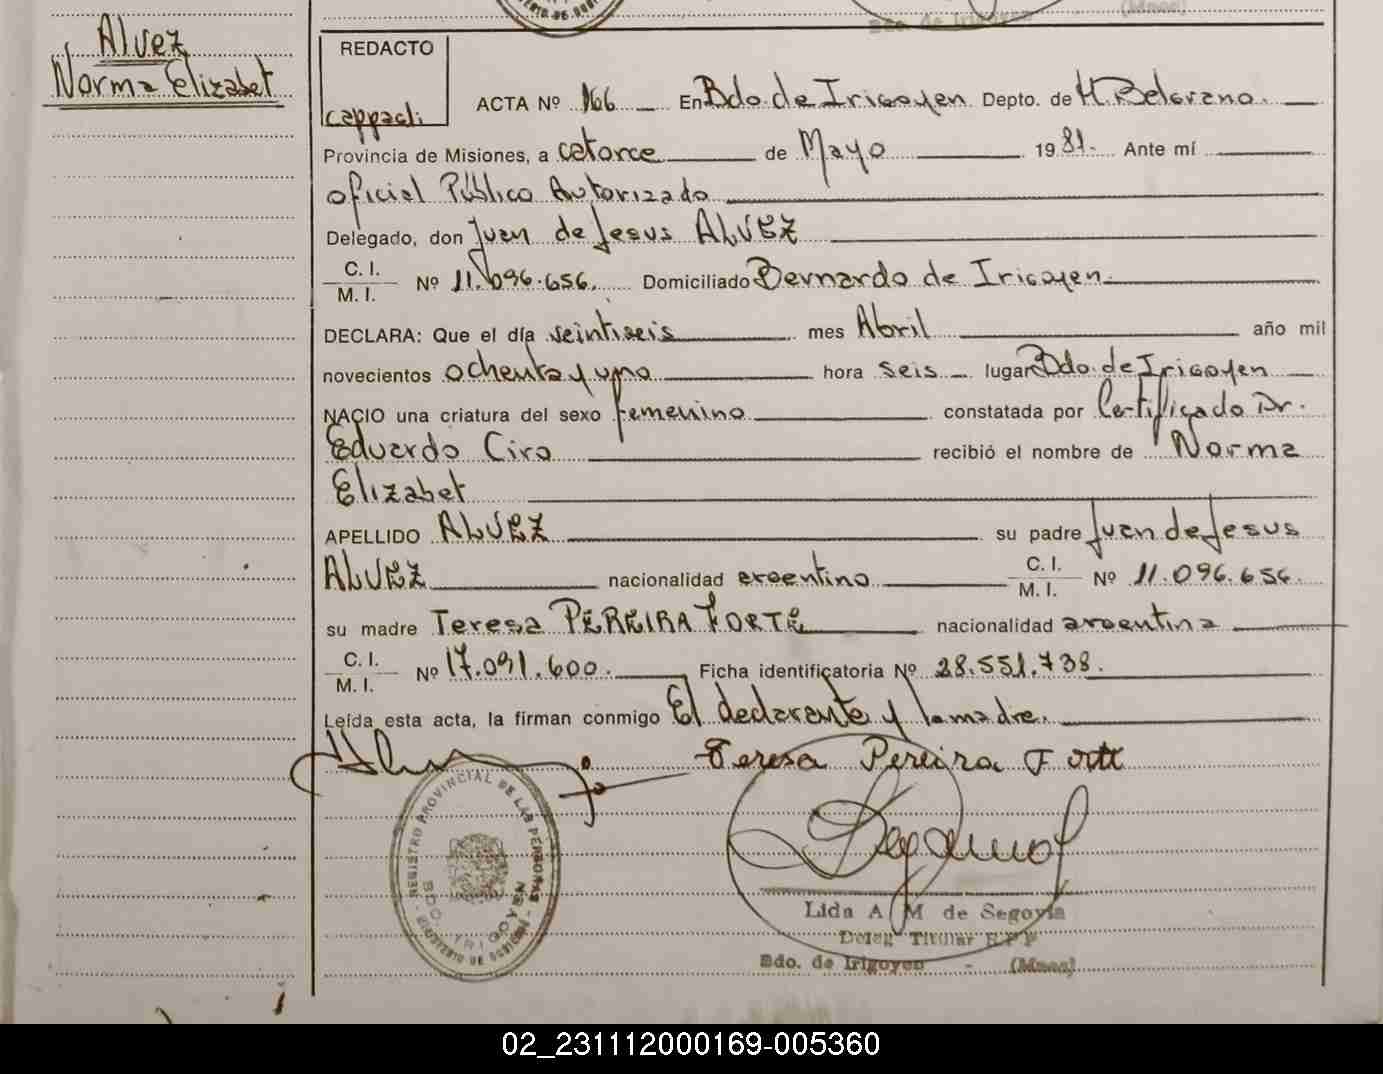 Bdo. de Irigoyen
(Mnes)
Alvez
Norma Elizabet
REDACTO
cappacli
ACTA Nº 166 En Bdo. de Irigoyen Depto. de M. Belgrano.
Provincia de Misiones, a catorce de Mayo 1981. Ante mí
oficial Público Autorizado
Delegado, don Juan de Jesus ALVEZ
C. I.
M. I. Nº 11.096.656. Domiciliado Bernardo de Irigoyen.
DECLARA: Que el día veintiseis mes Abril año mil
novecientos ochenta y uno hora seis lugar Bdo. de Irigoyen
NACIO una criatura del sexo femenino constatada por Certificado Dr.
Eduardo Ciro recibió el nombre de Norma
Elizabet
APELLIDO ALVEZ su padre Juan de Jesus
ALVEZ nacionalidad argentino C. I.
M. I. Nº 11.096.656.
su madre Teresa PEREIRA FORTE nacionalidad argentina
C. I.
M. I. Nº 17.091.600. Ficha identificatoria Nº 28.551.738.
Leída esta acta, la firman conmigo El declarante y la madre.
Teresa Pereira Forte
REGISTRO PROVINCIAL DE LAS PERSONAS
BDO. IRIGOYEN
MINISTERIO DE GOBIERNO
Lida A M de Segovia
Deleg Titular R P P
Bdo. de Irigoyen - (Mnes)
02_231112000169-005360